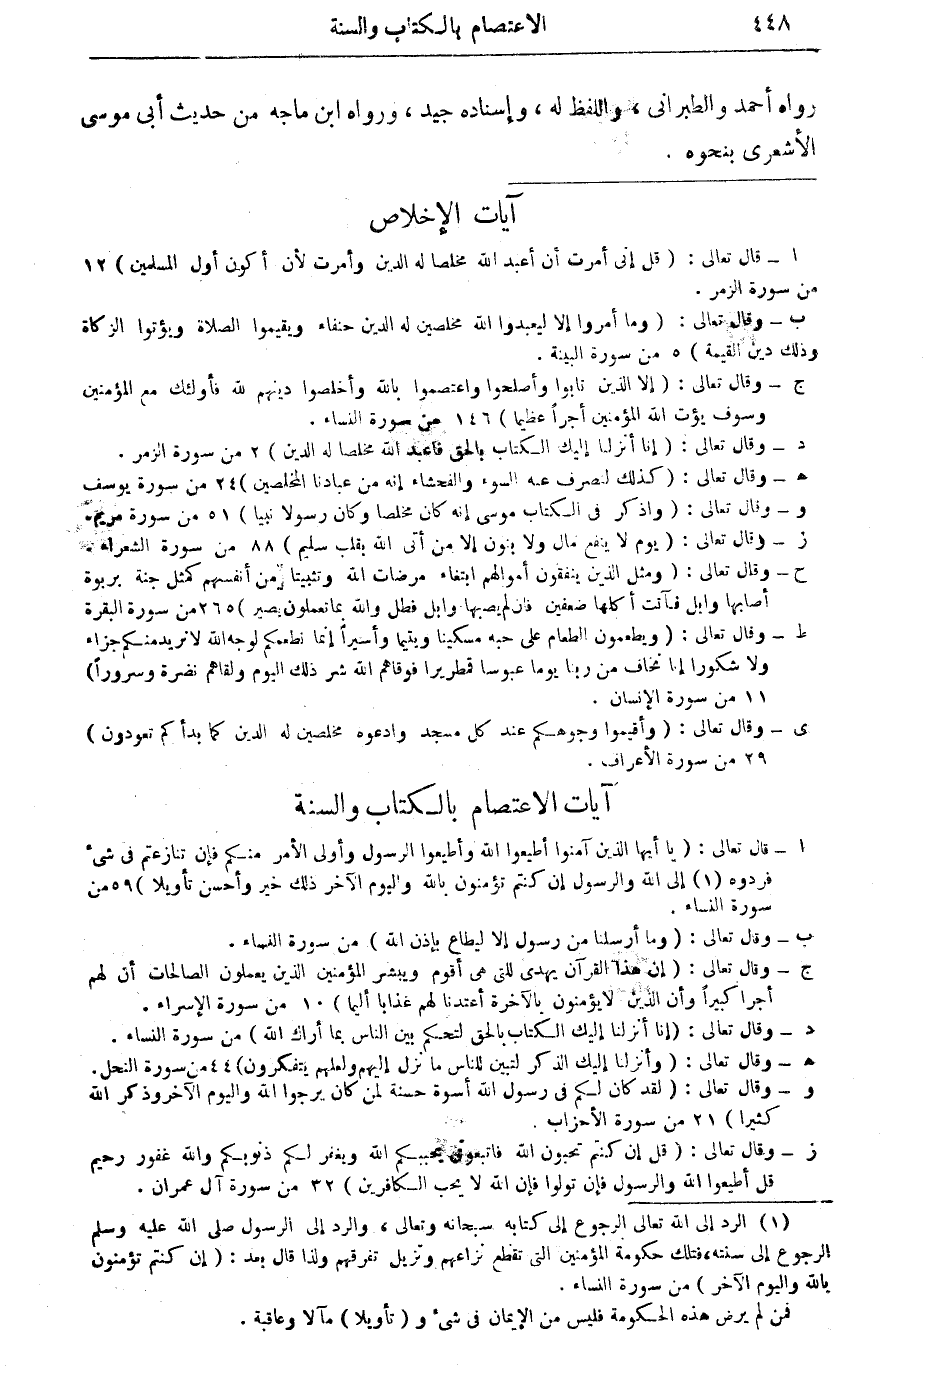 ٤٤٨
الاعتصام بالكتاب والسنة
رواه أحمد والطبرانى ، واللفظ له ، وإسناده جيد ، ورواه ابن ماجه من حديث أبى موسى
الأشعرى بنحوه .
آيات الإخلاص
ا ــ قال تعالى : ( قل إنى أمرت أن أعبد الله مخلصا له الدين وأمرت لأن أكون أول المسلمين ) ١٢
من سورة الزمر .
ب ــ وقال تعالى : ( وما أمروا إلا ليعبدوا الله مخلصين له الدين حنفاء ويقيموا الصلاة ويؤتوا الزكاة
وذلك دين القيمة ) ٥ من سورة البينة .
ج ــ وقال تعالى : ( إلا الذين تابوا وأصلحوا واعتصموا بالله وأخلصوا دينهم لله فأولئك مع المؤمنين
وسوف يؤت الله المؤمنين أجراً عظيما ) ١٤٦ من سورة النساء .
د ــ وقال تعالى : ( إنا أنزلنا إليك الكتاب بالحق فاعبد الله مخلصا له الدين ) ٢ من سورة الزمر .
ه ــ وقال تعالى : ( كذلك لنصرف عنه السوء والفحشاء إنه من عبادنا المخلصين )٢٤ من سورة يوسف
و ــ وقال تعالى : ( واذكر فى الكتاب موسى إنه كان مخلصا وكان رسولا نبيا ) ٥١ من سورة مريم.
ز ــ وقال تعالى : ( يوم لا ينفع مال ولا بنون إلا من أتى الله بقلب سليم ) ٨٨ من سورة الشعراء .
ح ــ وقال تعالى : ( ومثل الذين ينفقون أموالهم ابتغاء مرضات الله وتثبيتا من أنفسهم كمثل جنة بربوة
أصابها وابل فآتت أكلها ضعفين فان لم يصبها وابل فطل والله بما تعملون بصير ) ٢٦٥ من سورة البقرة
ط ــ وقال تعالى : ( ويطعمون الطعام على حبه مسكينا ويتيما وأسيراً إنما نطعمكم لوجه الله لا نريد منكم جزاء
ولا شكورا إنا نخاف من ربنا يوما عبوسا قمطريرا فوقاهم الله شر ذلك اليوم ولقاهم نضرة وسروراً)
١١ من سورة الإنسان .
ى ــ وقال تعالى : ( وأقيموا وجوهكم عند كل مسجد وادعوه مخلصين له الدين كما بدأكم تعودون )
٢٩ من سورة الأعراف .
آيات الاعتصام بالكتاب والسنة
ا ــ قال تعالى : ( يا أيها الذين آمنوا أطيعوا الله وأطيعوا الرسول وأولى الأمر منكم فإن تنازعتم فى شىء
فردوه (١) إلى الله والرسول إن كنتم تؤمنون بالله واليوم الآخر ذلك خير وأحسن تأويلا ) ٥٩ من
سورة النساء .
ب ــ وقال تعالى : ( وما أرسلنا من رسول إلا ليطاع بإذن الله ) من سورة النساء .
ج ــ وقال تعالى : ( إن هذا القرآن يهدى للتى هى أقوم ويبشر المؤمنين الذين يعملون الصالحات أن لهم
أجرا كبيراً وأن الذين لا يؤمنون بالآخرة أعتدنا لهم عذابا أليما ) ١٠ من سورة الإسراء .
د ــ وقال تعالى : (إنا أنزلنا إليك الكتاب بالحق لتحكم بين الناس بما أراك الله ) من سورة النساء .
ه ــ وقال تعالى : ( وأنزلنا إليك الذكر لتبين للناس ما نزل إليهم ولعلهم يتفكرون) ٤٤ من سورة النحل.
و ــ وقال تعالى : ( لقد كان لكم فى رسول الله أسوة حسنة لمن كان يرجوا الله واليوم الآخر وذكر الله
كثيرا ) ٢١ من سورة الأحزاب .
ز ــ وقال تعالى : ( قل إن كنتم تحبون الله فاتبعونى يحببكم الله ويغفر لكم ذنوبكم والله غفور رحيم
قل أطيعوا الله والرسول فإن تولوا فإن الله لا يحب الكافرين ) ٣٢ من سورة آل عمران .
(١) الرد إلى الله تعالى الرجوع إلى كتابه سبحانه وتعالى ، والرد إلى الرسول صلى الله عليه وسلم
الرجوع إلى سنته،فتلك حكومة المؤمنين التى تقطع نزاعهم وتزيل تفرقهم ولذا قال بعد : ( إن كنتم تؤمنون
بالله واليوم الآخر ) من سورة النساء .
فمن لم يرض هذه الحكومة فليس من الإيمان فى شىء و ( تأويلا ) مآلا وعاقبة .